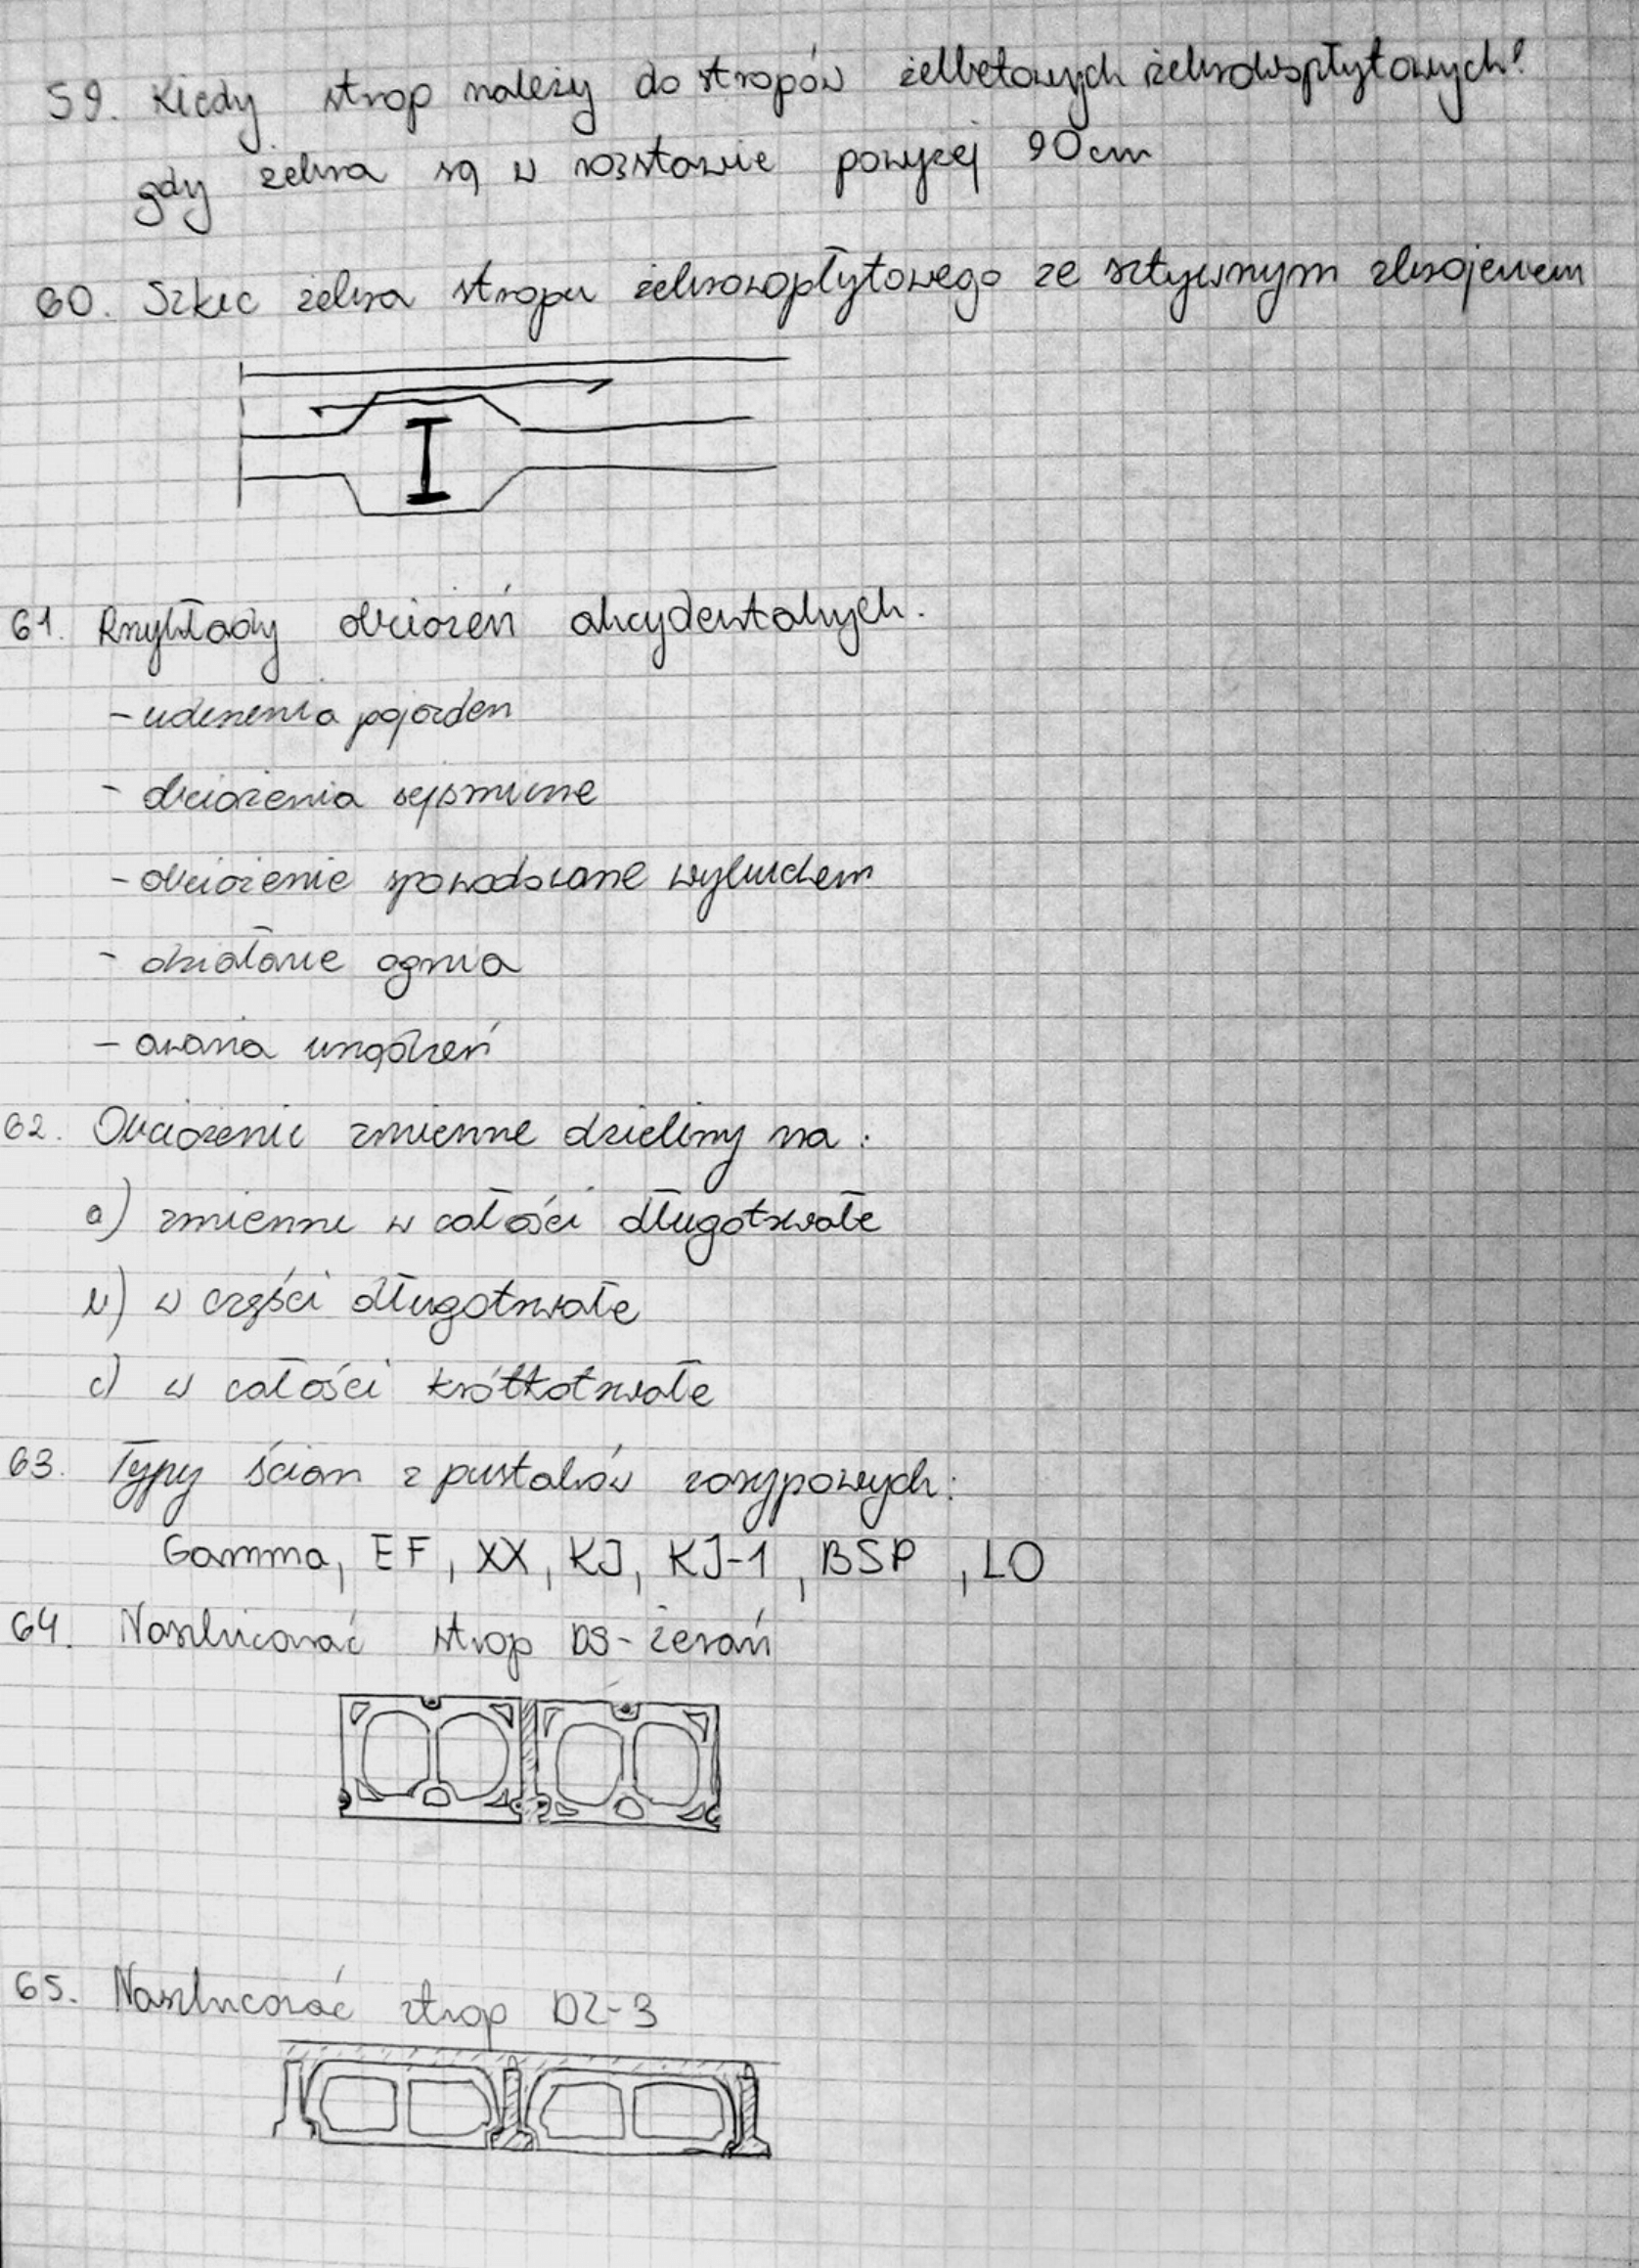 59. Kiedy strop należy do stropów żelbetowych żebrowopłytowych?
gdy żebra są w rozstawie powyżej 90cm
60. Szkic żebra stropu żebrowopłytowego ze sztywnym zbrojeniem
61. Przykłady obciążeń akcydentalnych.
- uderzenia pojazdem
- obciążenia sejsmiczne
- obciążenie spowodowane wybuchem
- działanie ognia
- awaria urządzeń
62. Obciążenie zmienne dzielimy na:
a) zmienne w całości długotrwałe
b) w części długotrwałe
c) w całości krótkotrwałe
63. Typy ścian z pustaków zasypowych:
Gamma, EF, XX, KJ, KJ-1, BSP, LO
64. Naszkicować strop DS-Żerań
65. Naszkicować strop DZ-3